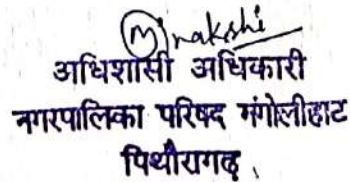 Minakshi
अधिशासी अधिकारी
नगरपालिका परिषद गंगोलीहाट
पिथौरागढ़